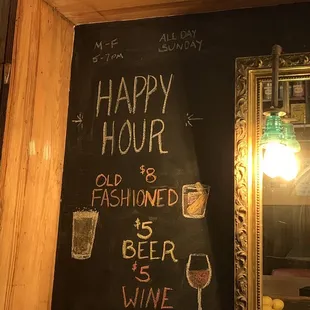 M-F
5-7PM
ALL DAY
SUNDAY
HAPPY
HOUR
$8
OLD
FASHIONED
$5
BEER
$5
WINE